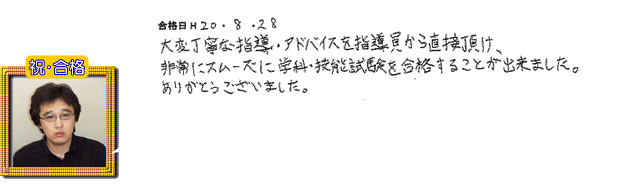 合格日 H20.8.28
大変丁寧な指導・アドバイスを指導員から直接頂け、
非常にスムーズに学科・技能試験を合格することが出来ました。
ありがとうございました。
祝・合格